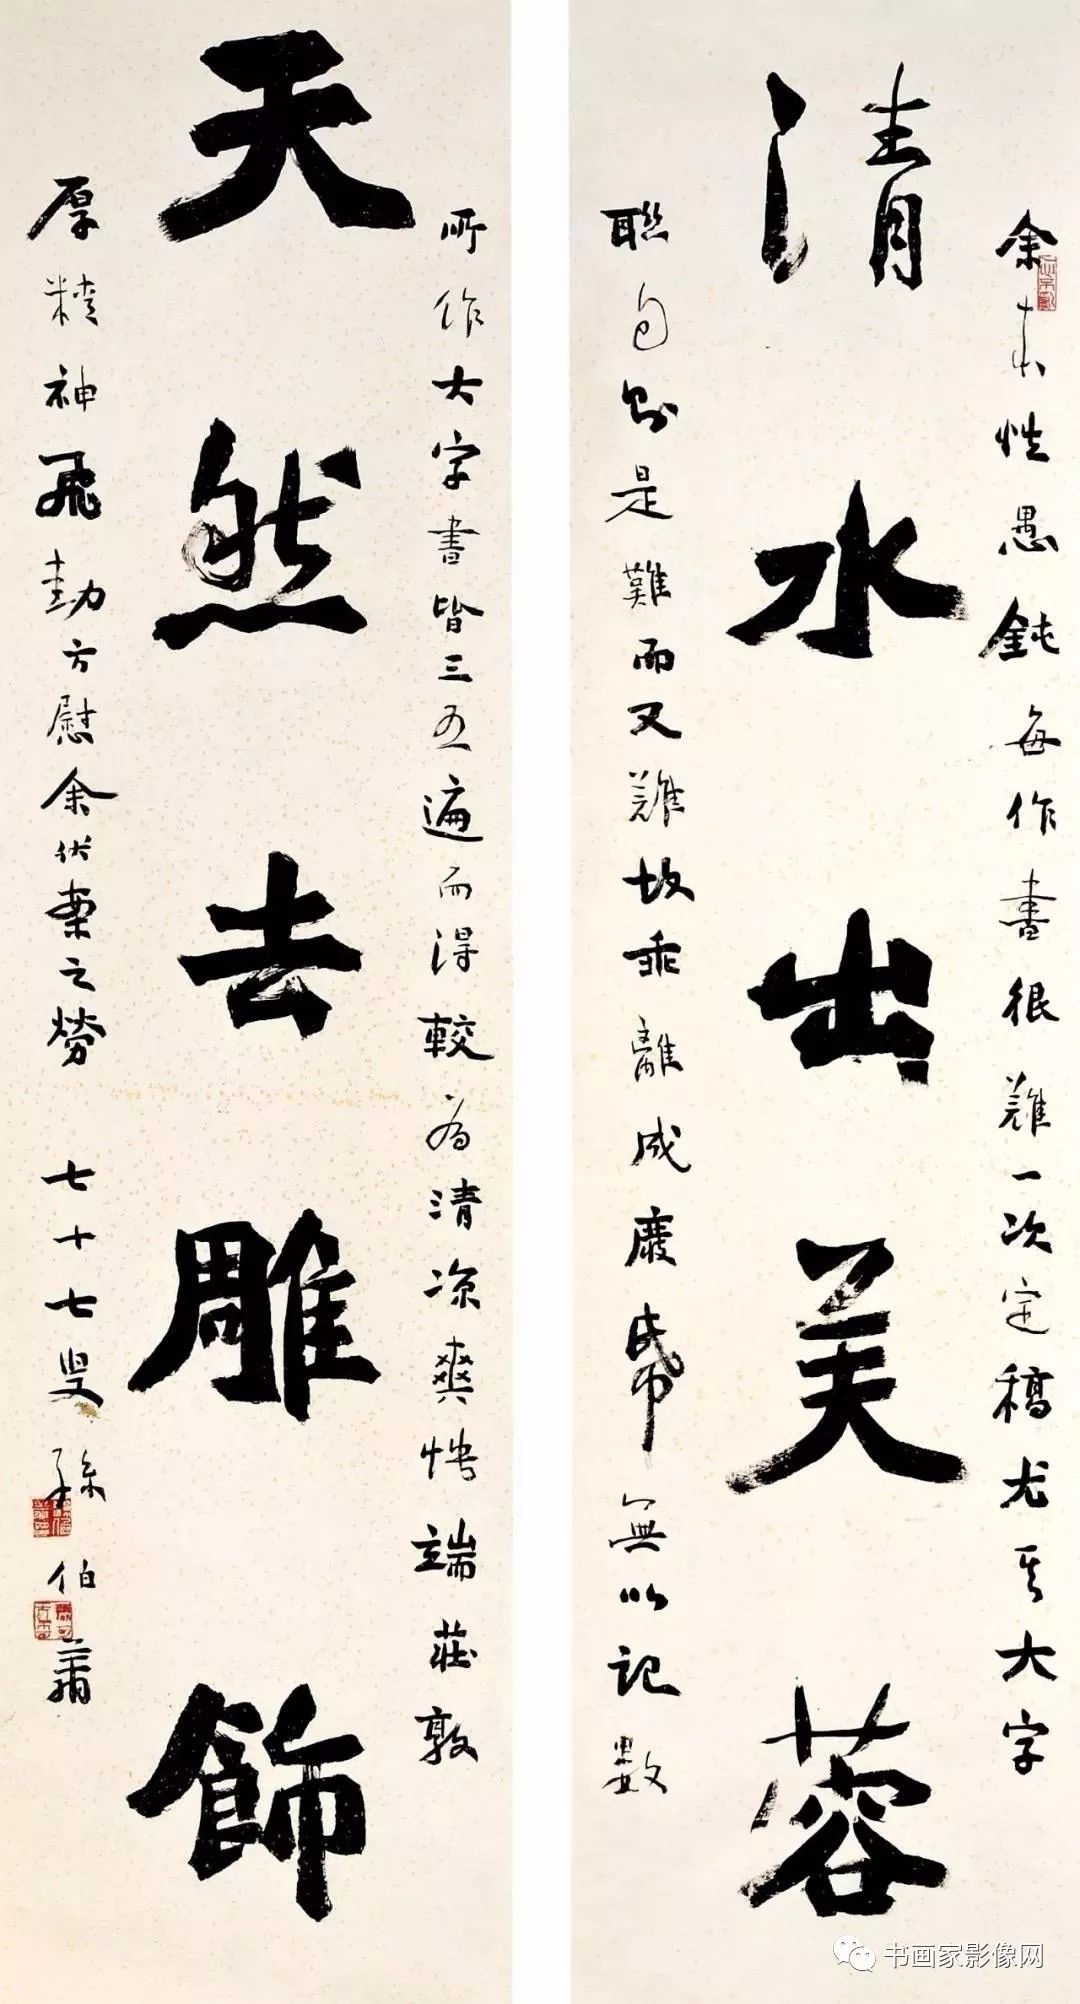 余本性愚鈍每作書很難一次定稿尤其大字
清水出芙蓉
聯句則是難而又難故乖離成廢帋無以記數
所作大字書皆三五遍而得較為清凉爽快端莊敦
天然去雕飾
厚精神飛動方慰余伏案之勞 七十七叟孫伯翔
书画家影像网